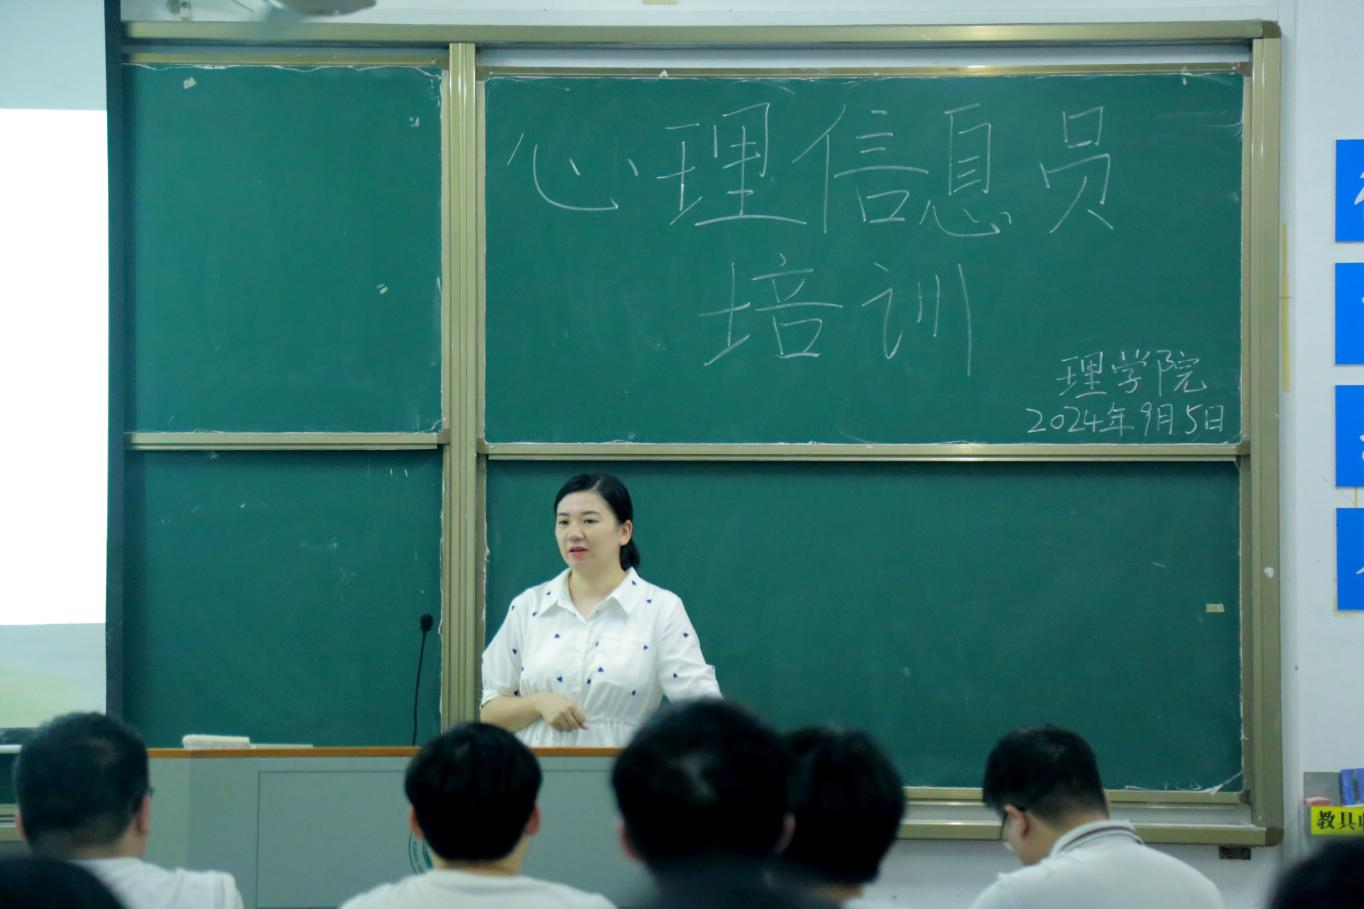 心理信息员
培训
理学院
2024年9月5日
教具